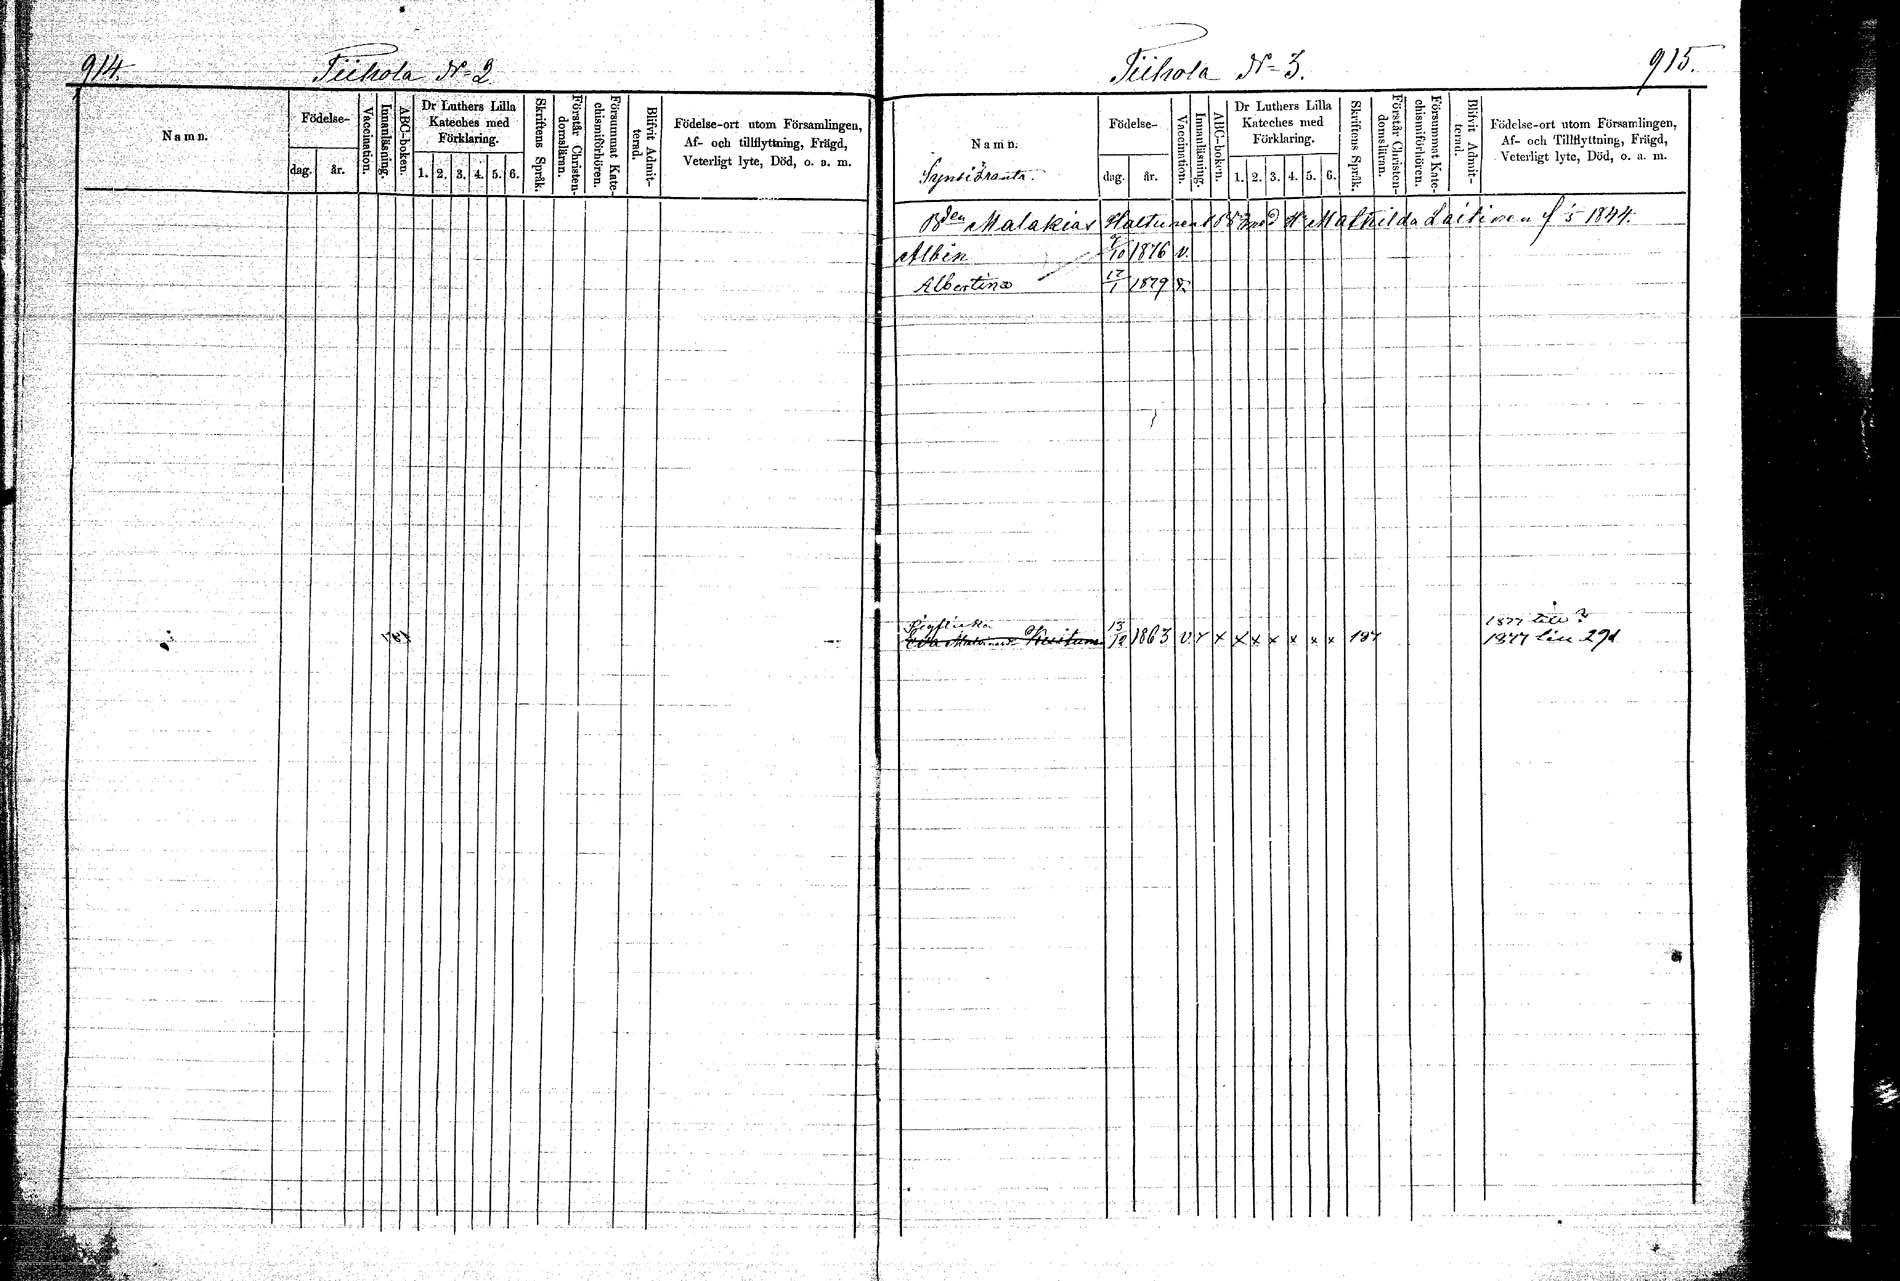 914.
Tiihola N= 2
Namn.
Födelse-
dag.
år.
Vaccination.
Innanläsning.
ABC-boken.
Dr Luthers Lilla
Kateches med
Förklaring.
1. 2. 3. 4. 5. 6.
Skriftens Språk.
Förstår Christen-
domsläran.
Försummat Kate-
chismiförhören.
Blifvit Admit-
terad.
Födelse-ort utom Församlingen,
Af- och tillflyttning, Frägd,
Veterligt lyte, Död, o. a. m.
Tiihola N= 3.
915.
Namn.
Födelse-
dag.
år.
Vaccination.
Innanläsning.
ABC-boken.
Dr Luthers Lilla
Kateches med
Förklaring.
1. 2. 3. 4. 5. 6.
Skriftens Språk.
Förstår Christen-
domsläran.
Försummat Kate-
chismiförhören.
Blifvit Admit-
terad.
Födelse-ort utom Församlingen,
Af- och Tillflyttning, Frägd,
Veterligt lyte, Död, o. a. m.
Bden Malakias Haltunen med Mathilda Laitinen f 5 1844.
Albin 1876 v.
Albertina 17/1 1879 v.
1877 till ?
13/12 1863 v. x x x x x x x 187
1877 till 291